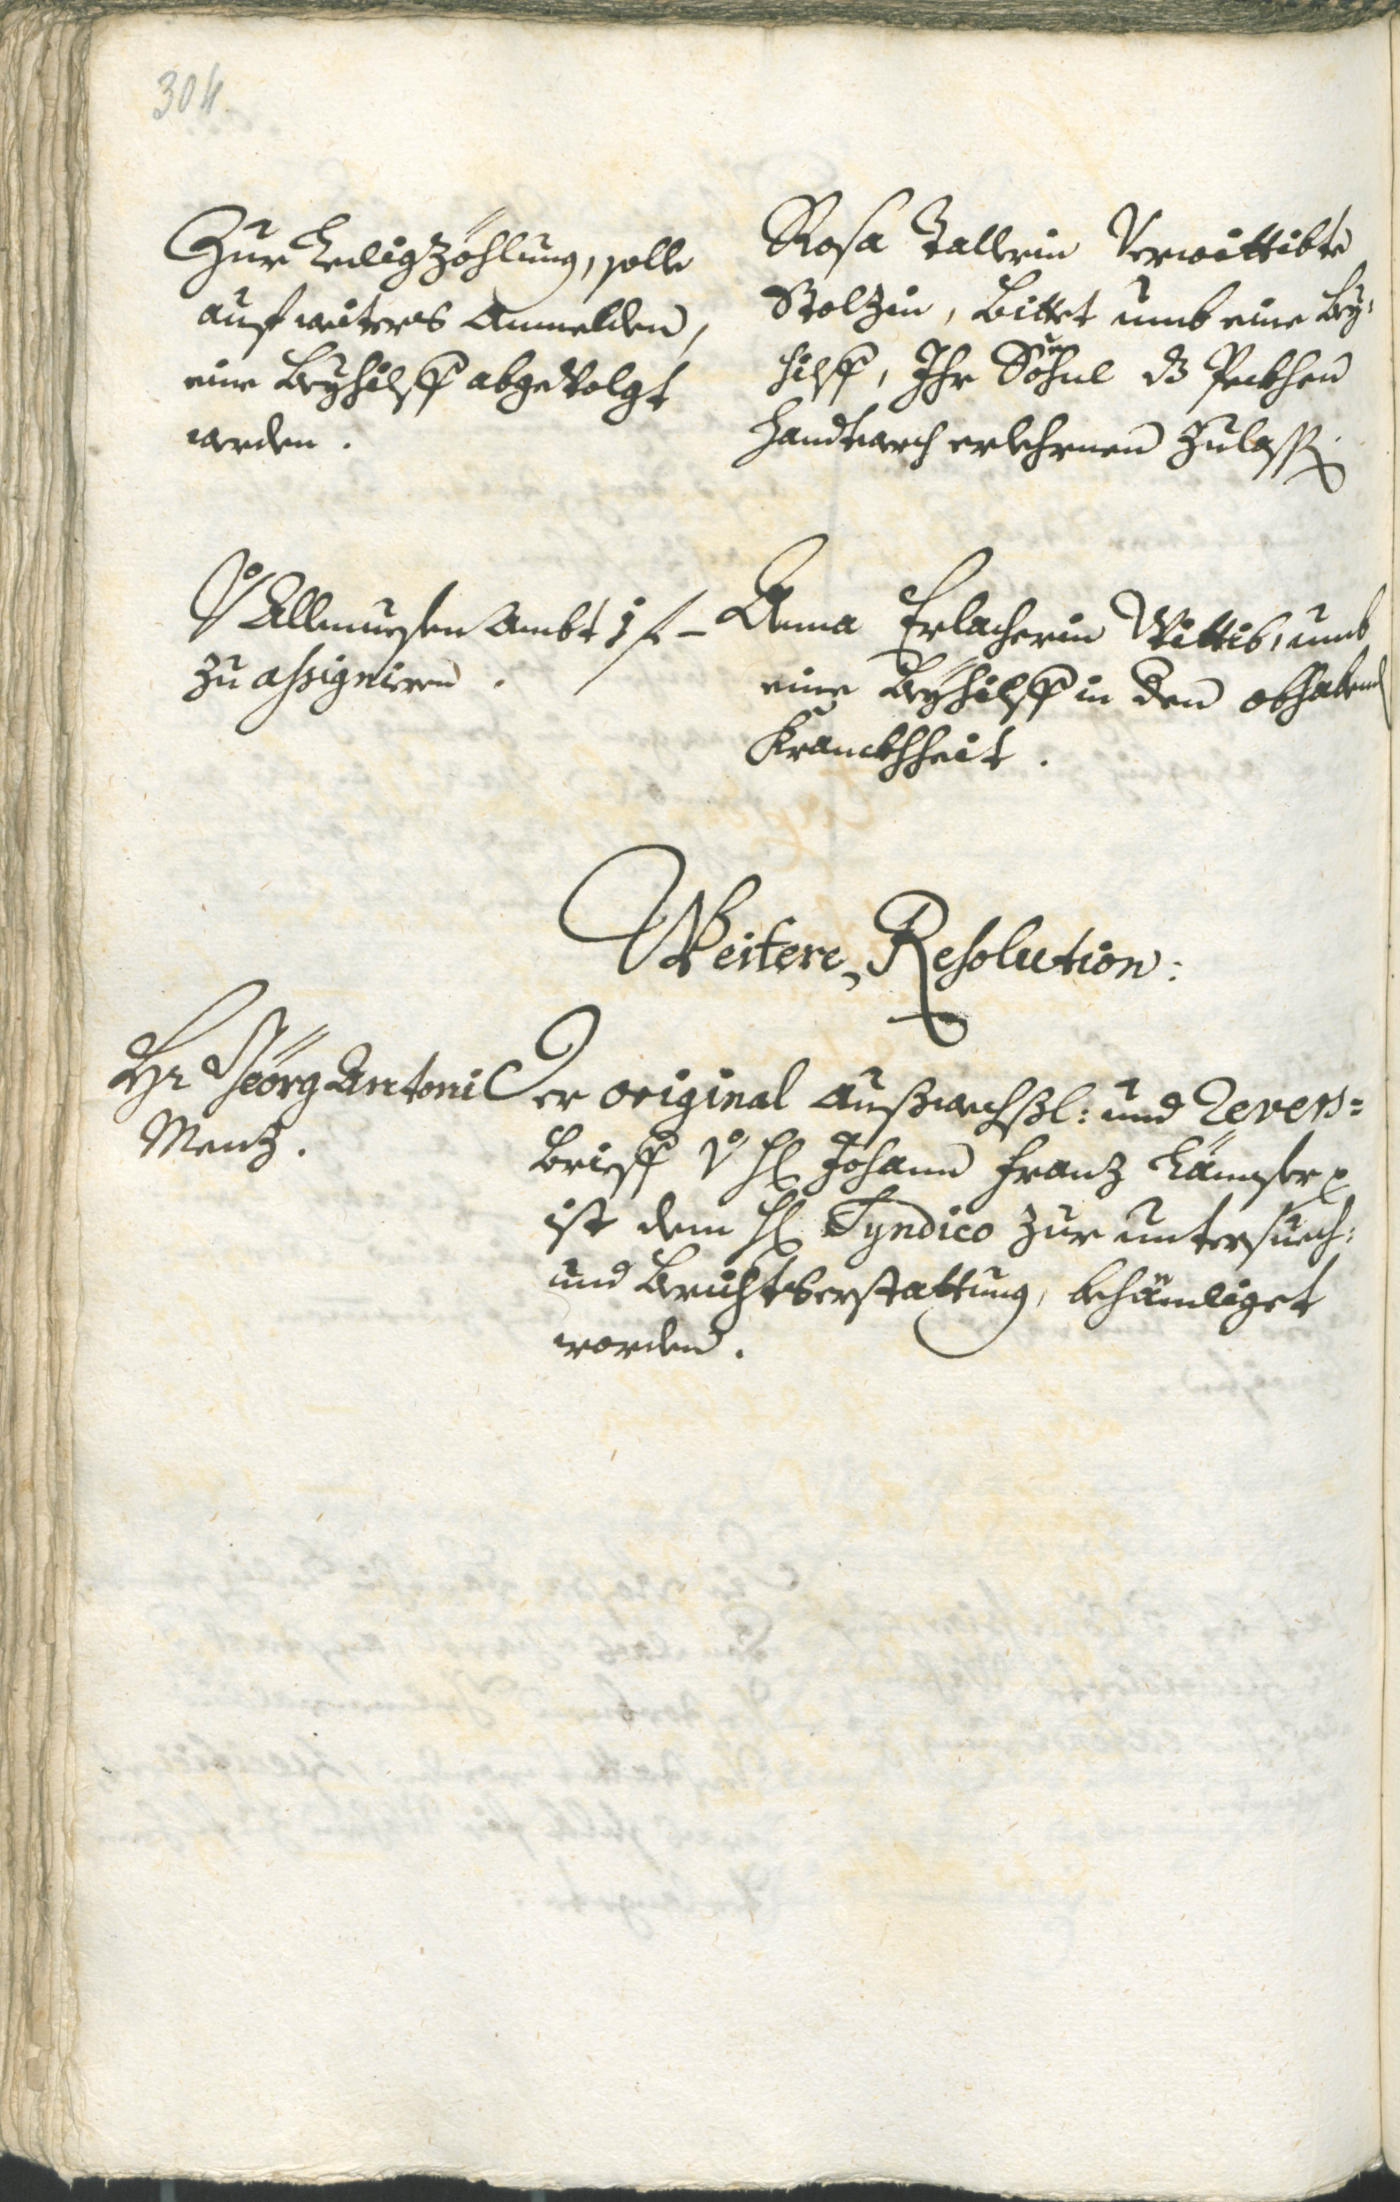 304.
Zur Ledigzöhlung, solle
auf weiters Anmelden,
eine Beyhilff abgevolgt
werden.
Rosa Zallerin Verwittibte
Stolzin, bittet umb eine Bey-
hilff, Ihr Söhnl dz Peckhen
Handtwerch erlehrnen zulassen.
Vom Allmuesen Ambt 1 f –
zu assignieren.
Anna Erlacherin Wittib, umb
eine Beyhilff in den obhabend
Kranckhheit.
Weitere Resolution:
Hr Georg Antoni
Menz.
Der original Außwechßl: und Revers-
brieff von H Johann Franz
ist dem H Syndico zur untersuech:
und Berichtserstattung, behändiget
worden.